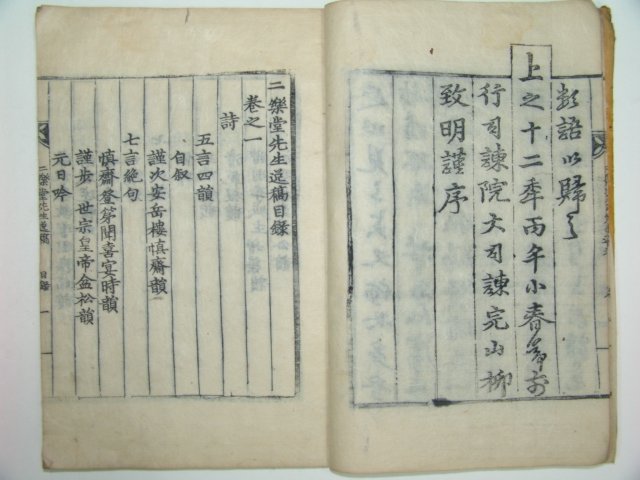 彭語以歸之
上之十二年丙午小春
行司諫院大司諫完山柳
致明謹序
二樂堂先生逸稿目錄
卷之一
詩
五言四韻
自叙
謹次安岳樓慎齋韻
七言絶句
慎齋登第聞喜宴時韻
謹步 世宗皇帝金松韻
元日吟
二樂堂先生逸稿 目錄 一